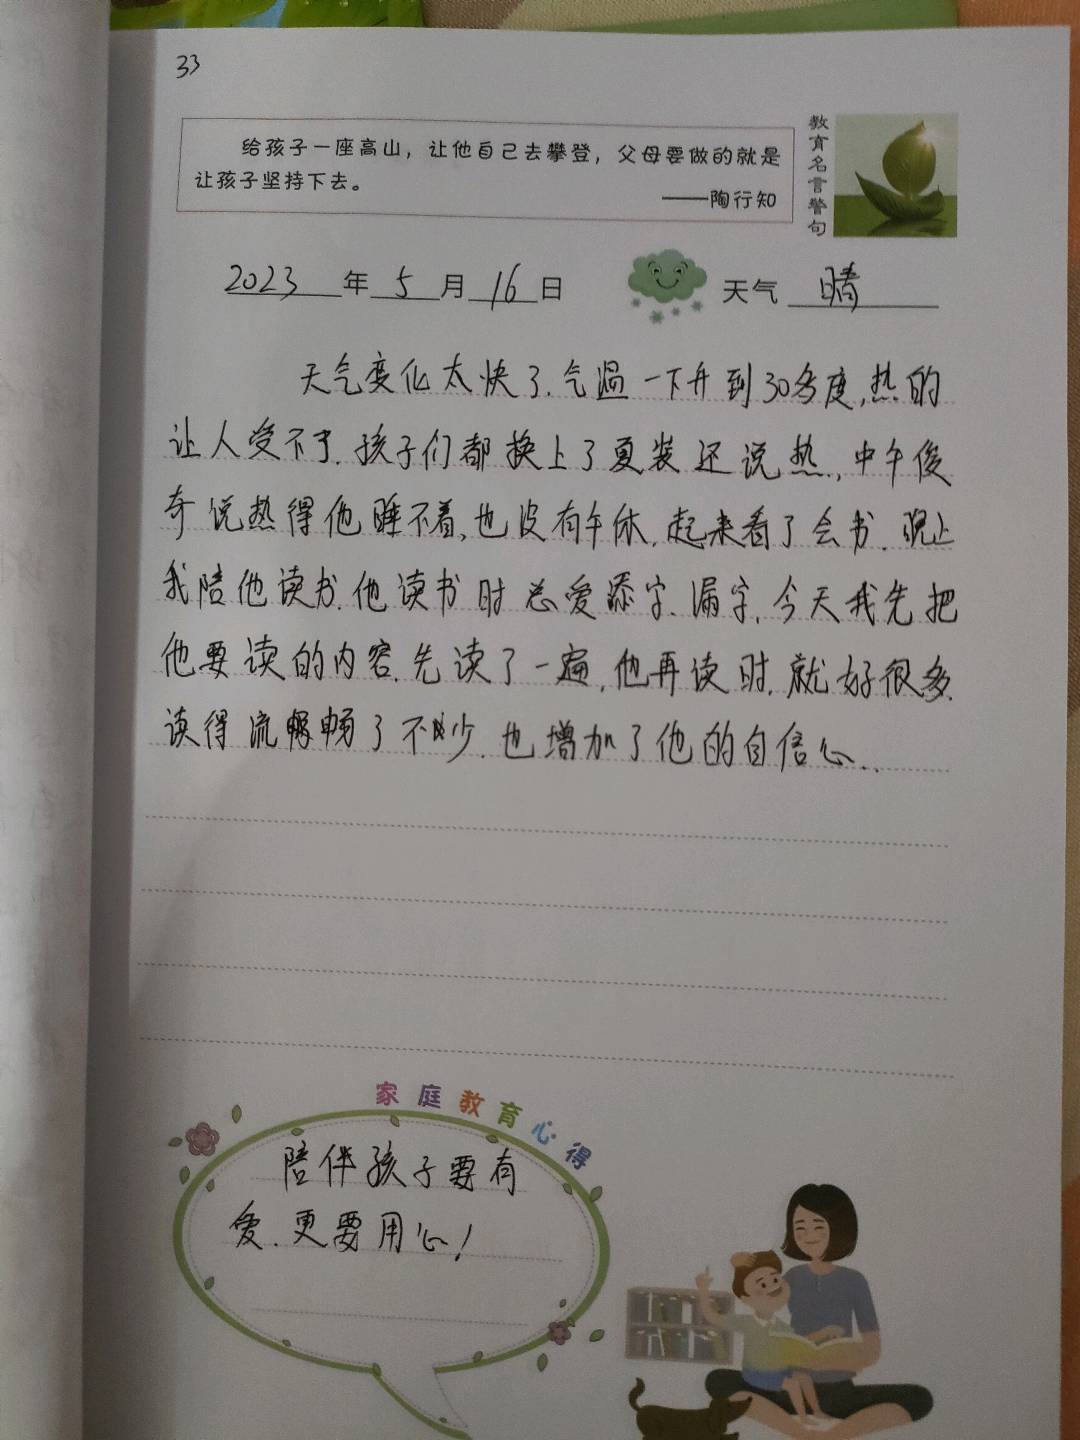 33
给孩子一座高山，让他自己去攀登，父母要做的就是
让孩子坚持下去。
——陶行知
教育名言警句
2023年5月16日 天气 晴
天气变化太快了.气温一下升到30多度,热的
让人受不了.孩子们都换上了夏装还说热,中午俊
奇说热得他睡不着,也没有午休.起来看了会书.晚上
我陪他读书.他读书时总爱添字.漏字,今天我先把
他要读的内容.先读了一遍,他再读时.就好很多.
读得流畅了不少.也增加了他的自信心..
家庭教育心得
陪伴孩子要有
爱.更要用心!